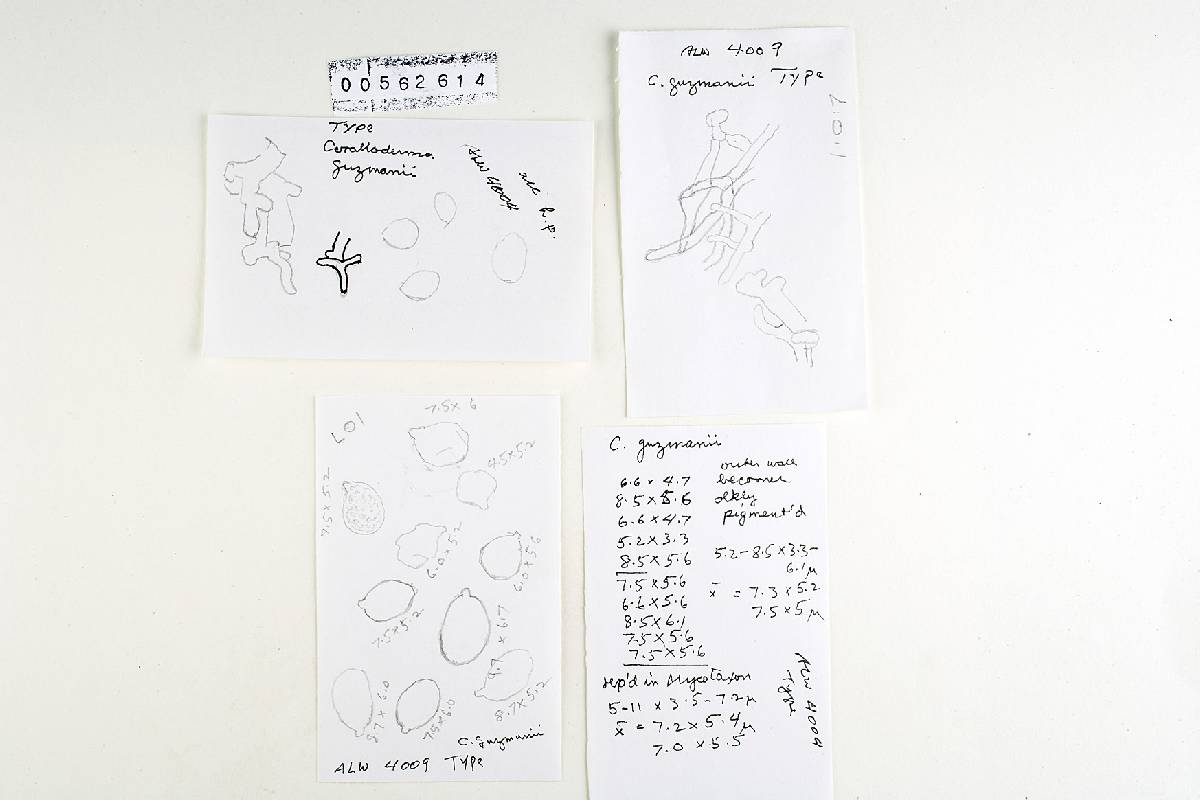 00562614
TYPE
Coralloderma
guzmanii
ALW 4009
ALW 4009
C. guzmanii TYPE
LO1
LO1
7.5 x 6
4.5 x 5.2
7.5 x 5.2
6.0 x 5.2
6.0 x 5.6
7.5 x 5.2
8.7 x 6.0
7.5 x 6.0
8.7 x 5.2
C. guzmanii
ALW 4009 TYPE
C. guzmanii
6.6 x 4.7
8.5 x 5.6
6.6 x 4.7
5.2 x 3.3
8.5 x 5.6
7.5 x 5.6
6.6 x 5.6
8.5 x 6.1
7.5 x 5.6
7.5 x 5.6
outer wall
becomes
pigment'd
5.2-8.5 x 3.3-
6.1 µ
x̄ = 7.3 x 5.2
7.5 x 5 µ
rep'd in Mycotaxon
5-11 x 3.5-7.2 µ
x̄ = 7.2 x 5.4 µ
7.0 x 5.5
ALW 4009
Type